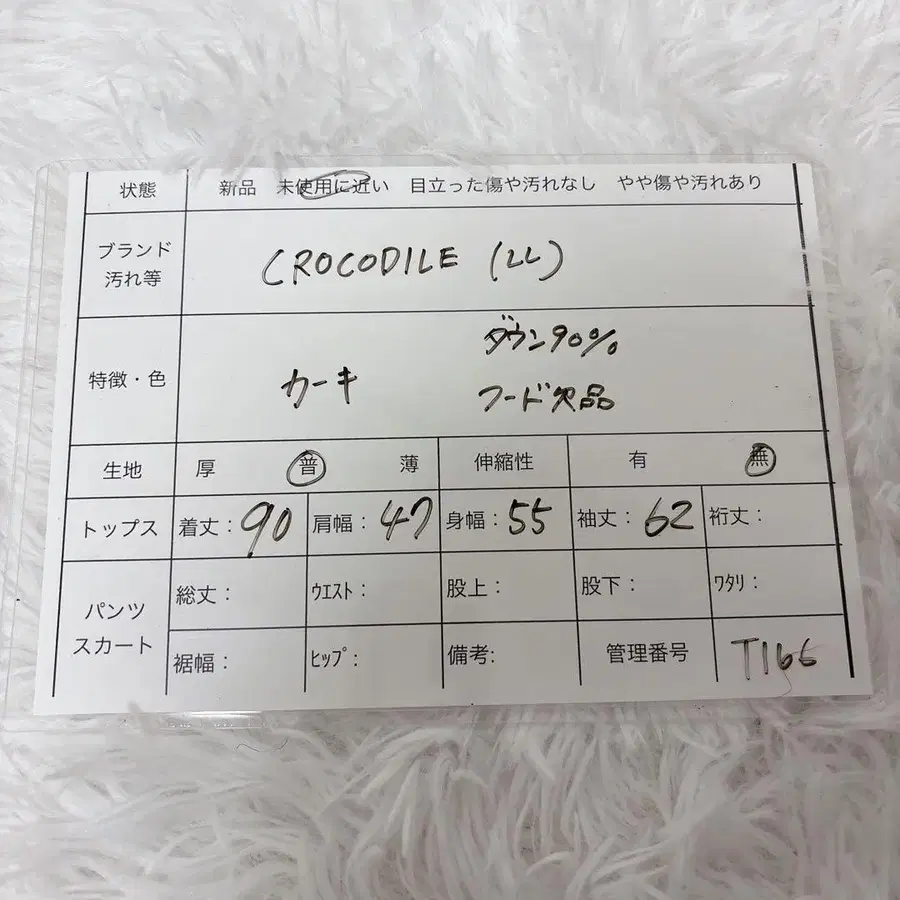 状態 新品 未使用に近い 目立った傷や汚れなし やや傷や汚れあり
ブランド
汚れ等
CROCODILE (LL)
特徴・色
カーキ
ダウン90%
フード欠品
生地 厚 普 薄 伸縮性 有 無
トップス 着丈：90 肩幅：47 身幅：55 袖丈：62 裄丈：
パンツ
スカート
総丈： ｳｴｽﾄ： 股上： 股下： ﾜﾀﾘ：
裾幅： ﾋｯﾌﾟ： 備考: 管理番号